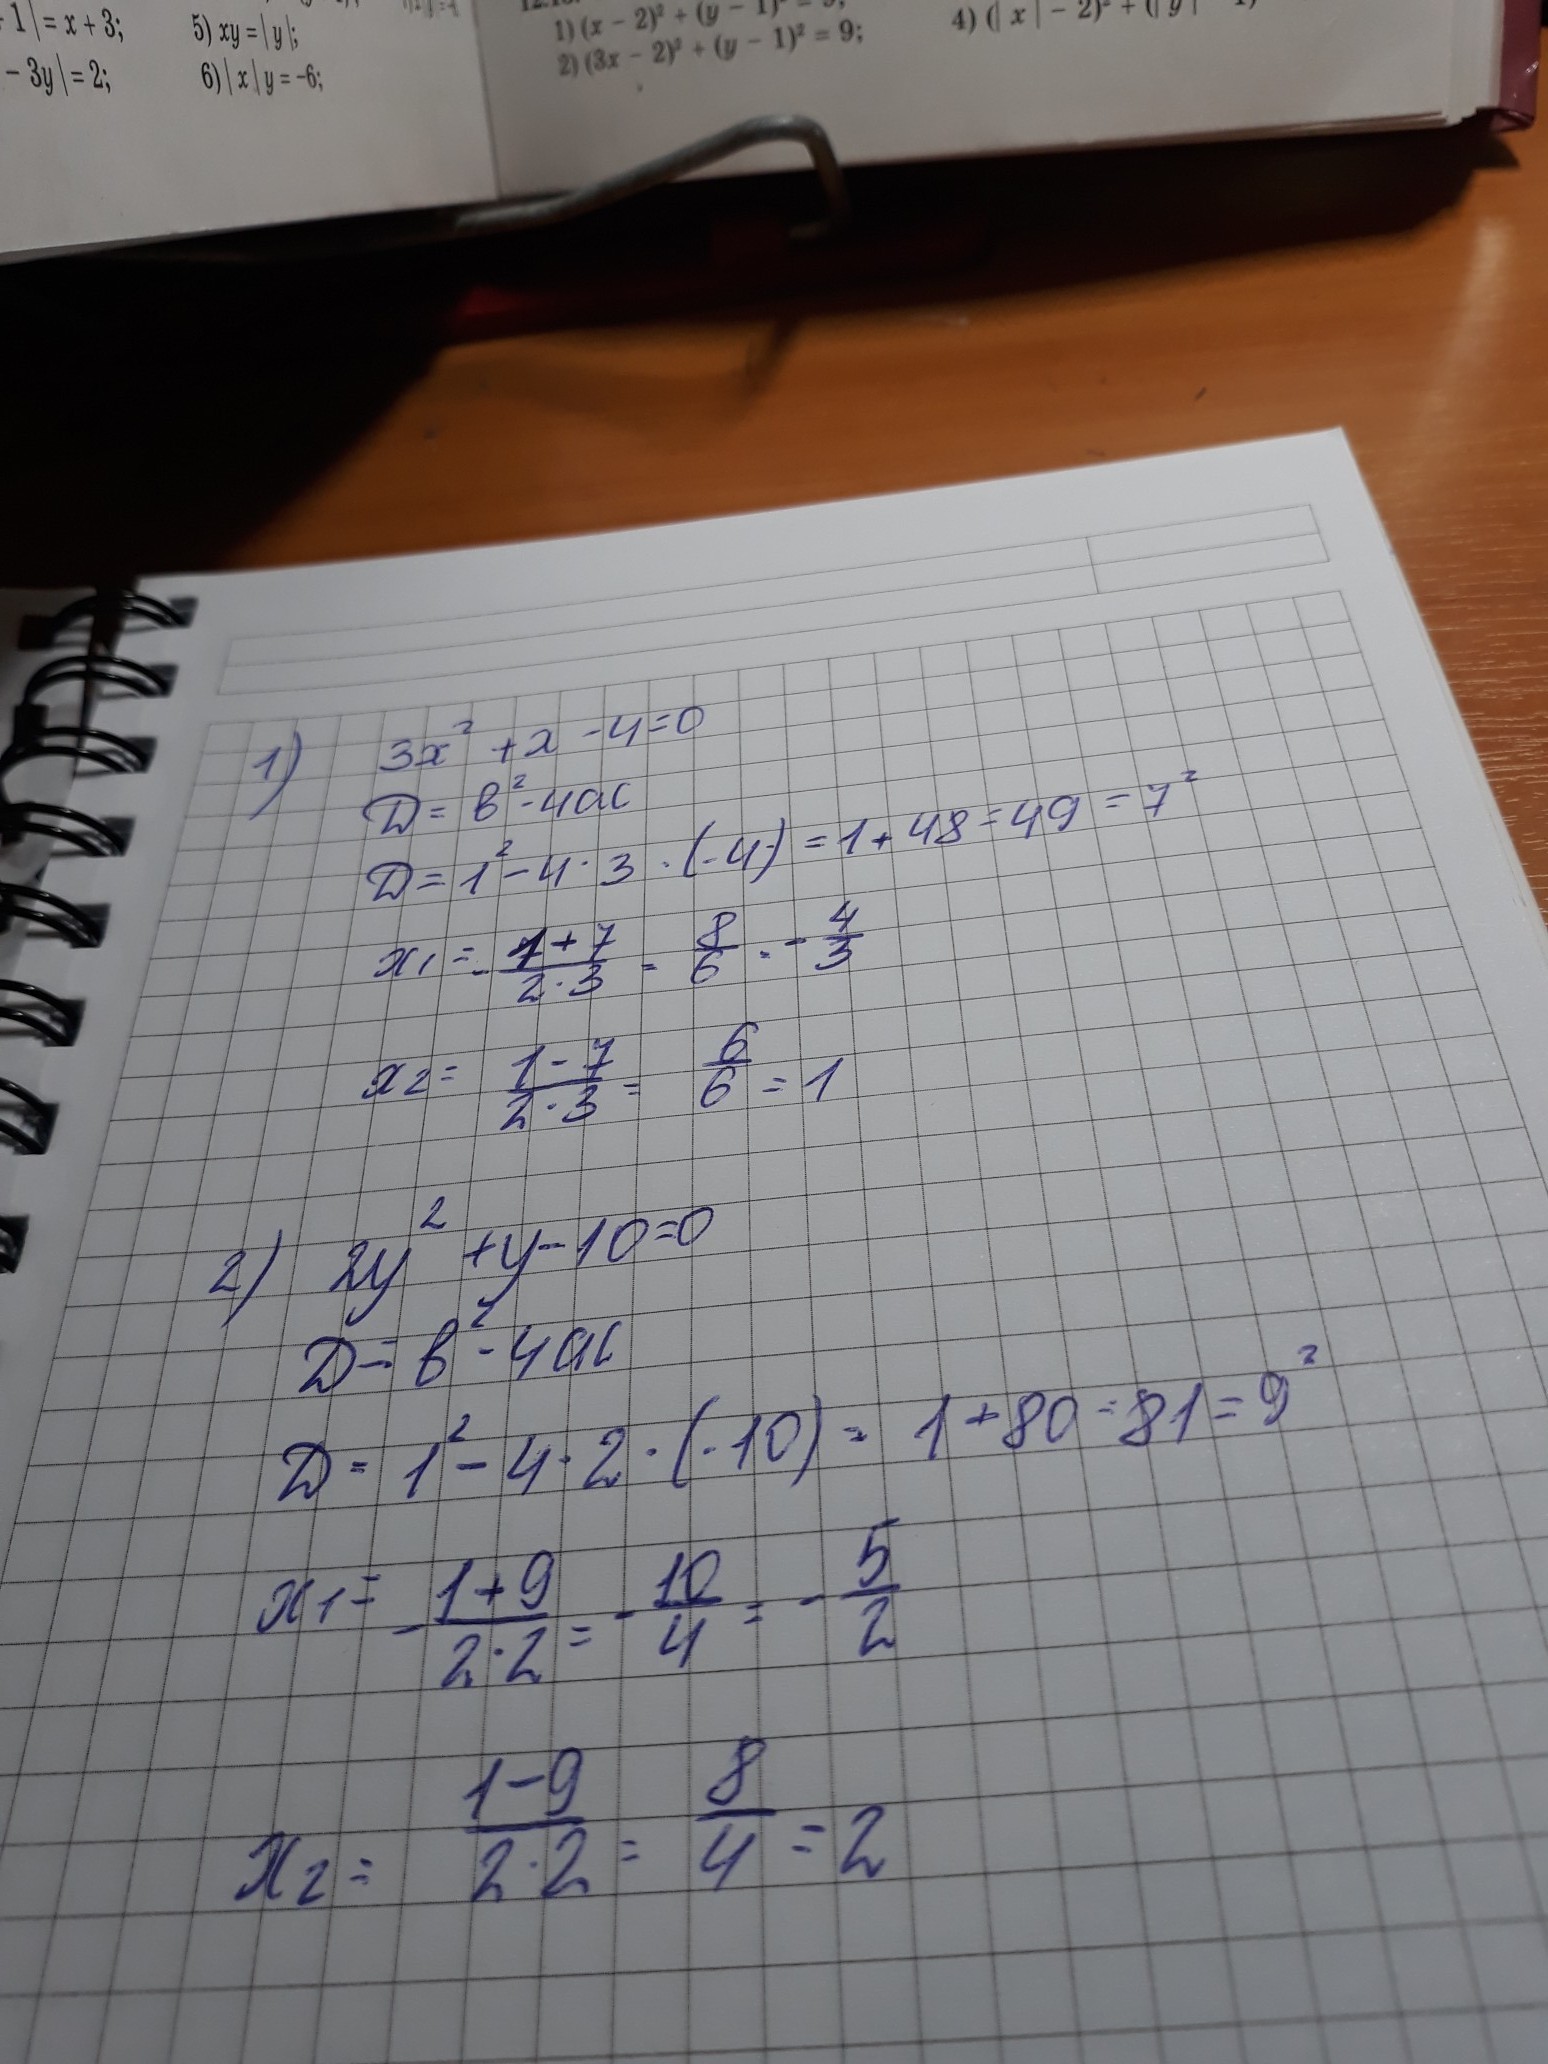 1| = x + 3;
- 3y| = 2;
5) xy = |y|;
6) |x|y = -6;
1) (x - 2)² + (y - 1)² = 9;
2) (3x - 2)² + (y - 1)² = 9;
4) (|x| - 2)² + (|y|
1) 3x² + x - 4 = 0
D = b² - 4ac
D = 1² - 4 · 3 · (-4) = 1 + 48 = 49 = 7²
x₁ = - (1 + 7)/(2 · 3) = 8/6 = - 4/3
x₂ = (1 - 7)/(2 · 3) = 6/6 = 1
2) 2y² + y - 10 = 0
D = b² - 4ac
D = 1² - 4 · 2 · (-10) = 1 + 80 = 81 = 9²
x₁ = - (1 + 9)/(2 · 2) = - 10/4 = - 5/2
x₂ = (1 - 9)/(2 · 2) = 8/4 = 2